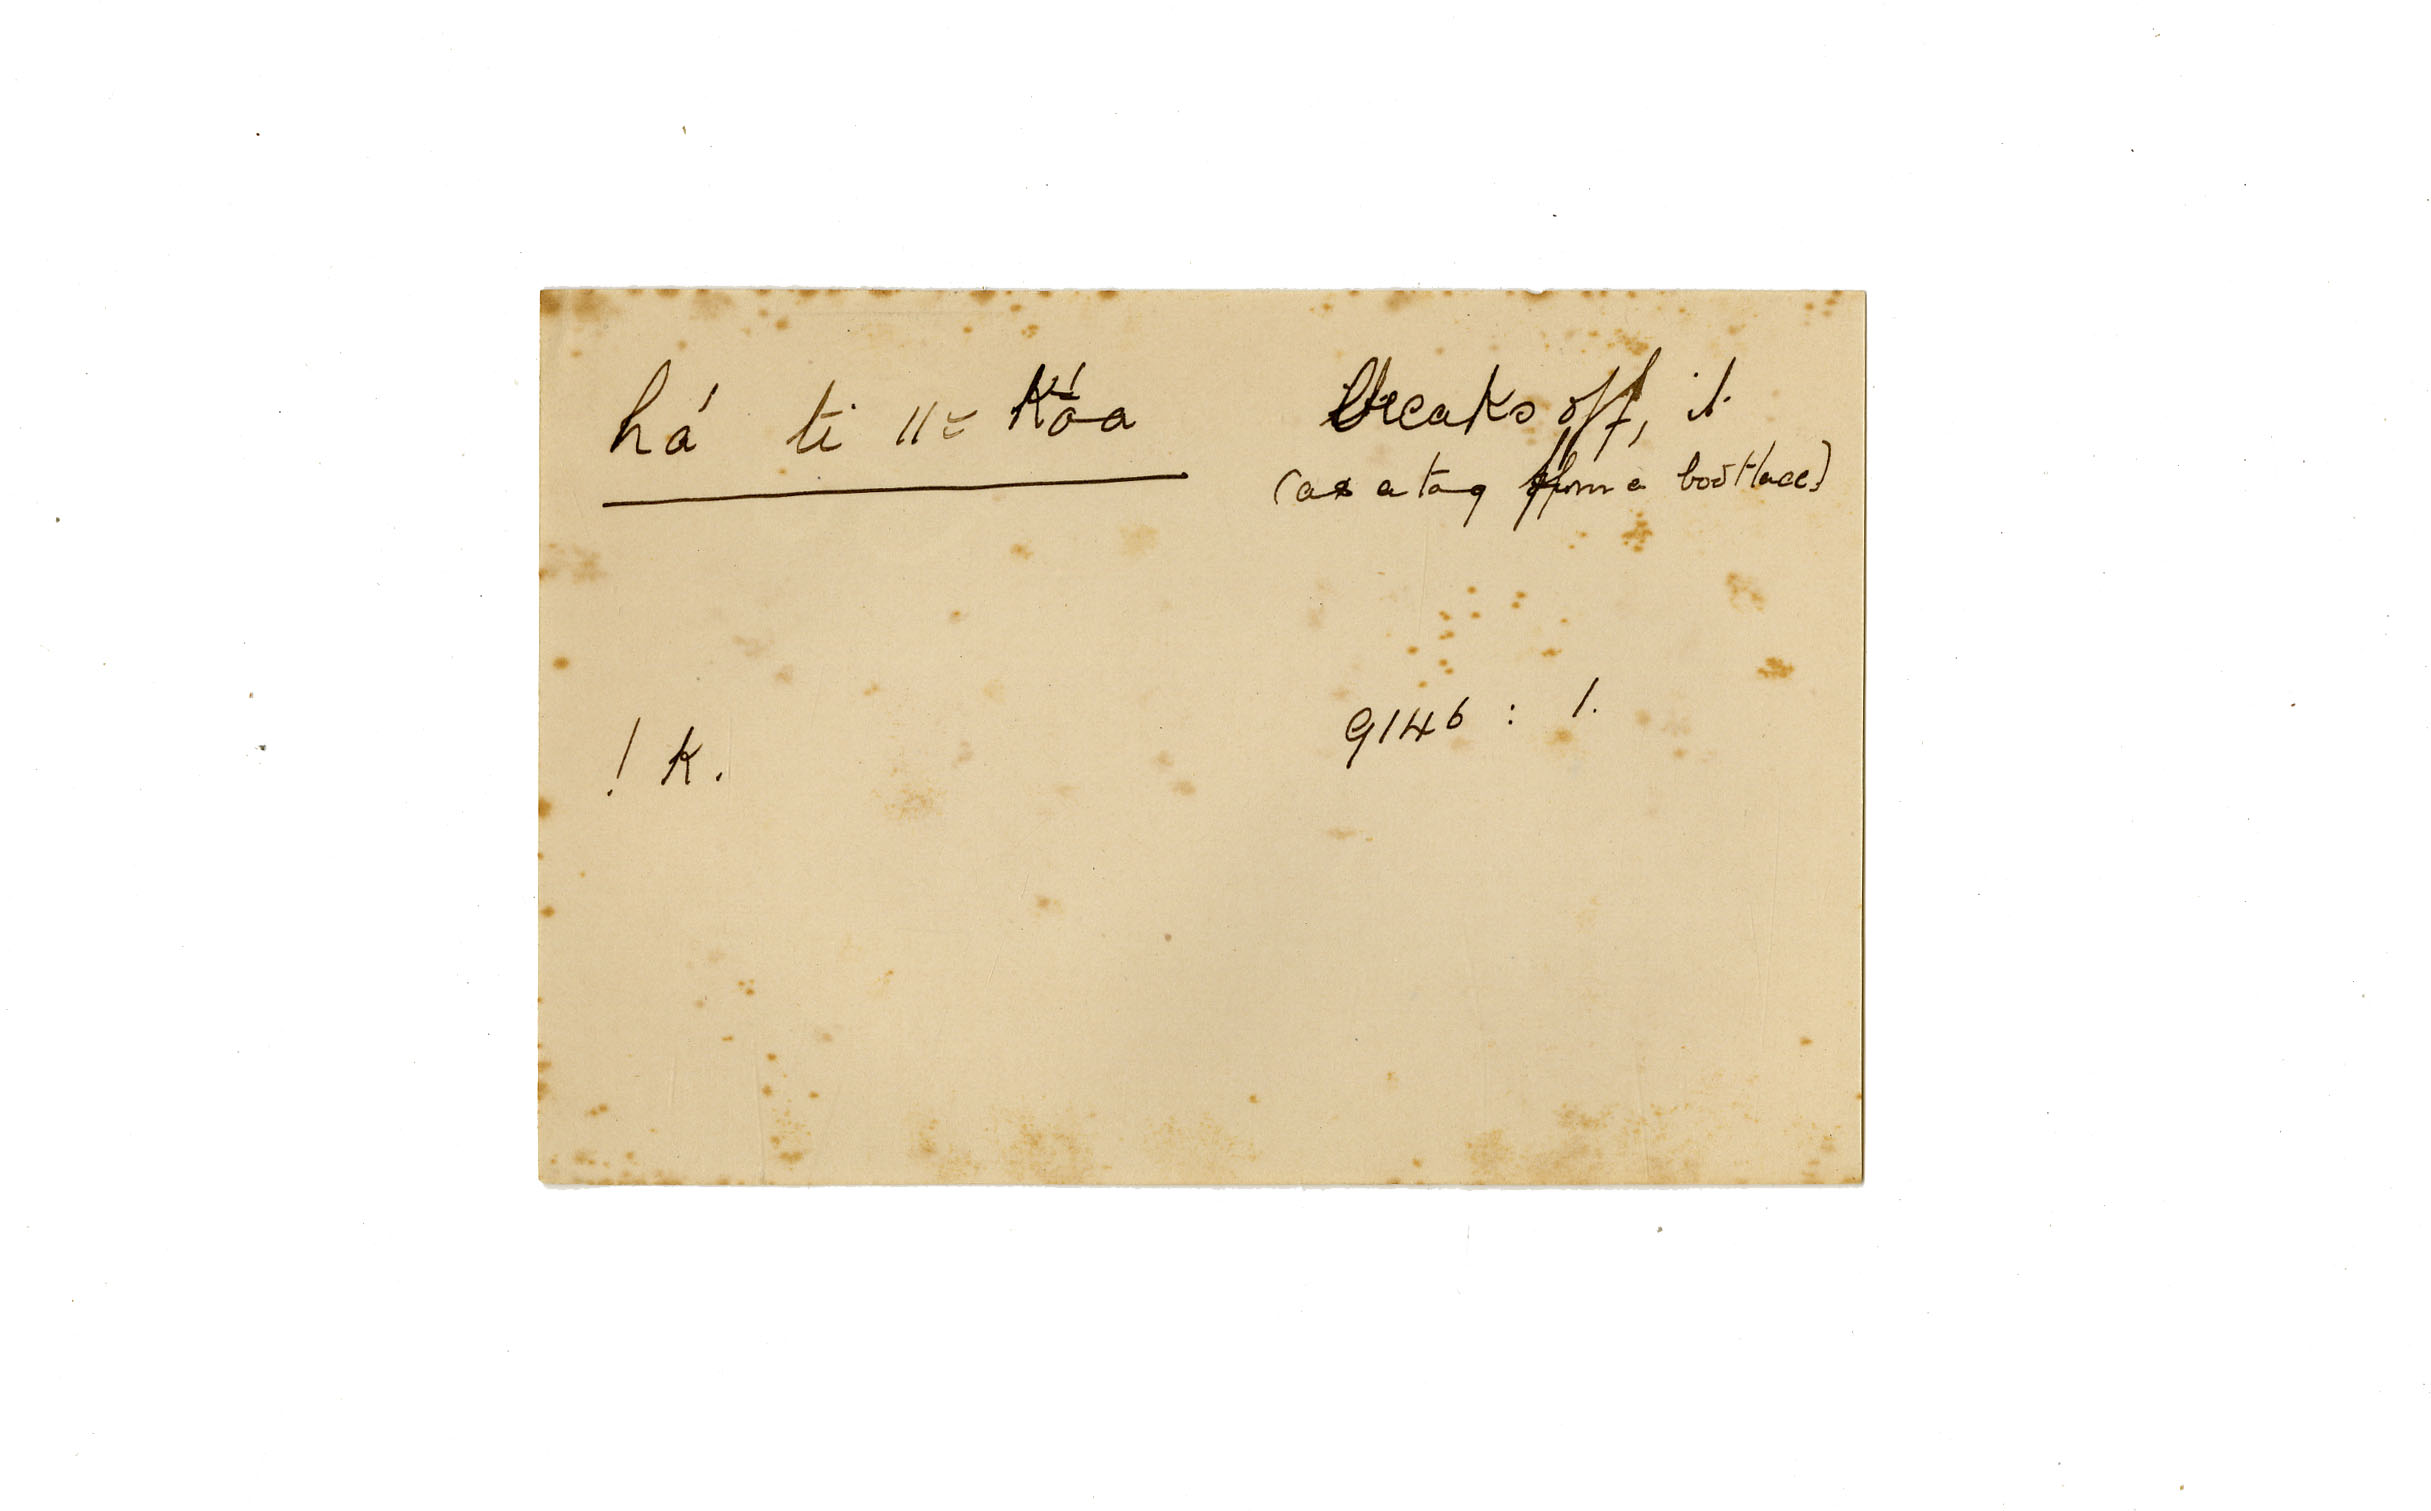 há ti ǁ˭ kṓa breaks off, it
(as a tag from a bootlace)
! K. 9146 : 1.